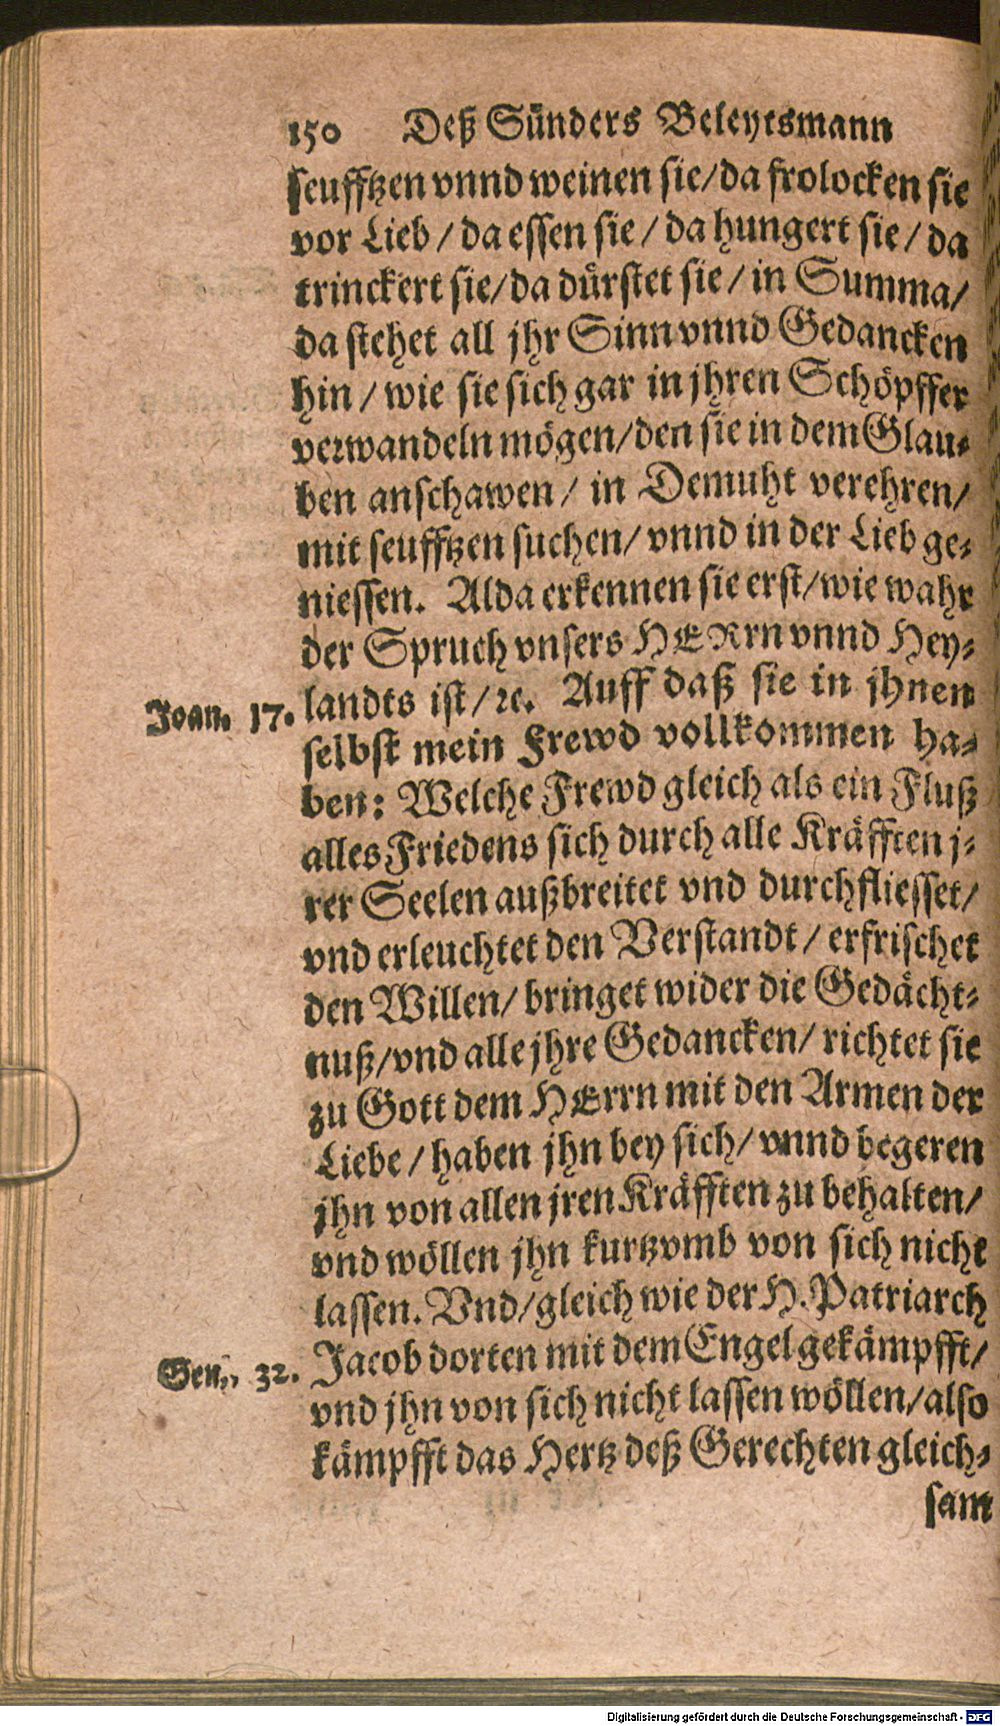 150 Deß Sünders Beleytsmann
seufftzen vnnd weinen sie/da frolocken sie
vor Lieb / da essen sie / da hungert sie / da
trinckert sie/da dürstet sie / in Summa/
da stehet all jhr Sinn vnnd Gedancken
hin / wie sie sich gar in jhren Schöpffer
verwandeln mögen/den sie in dem Glau-
ben anschawen / in Demuht verehren/
mit seufftzen suchen/ vnnd in der Lieb ge-
niessen. Alda erkennen sie erst/wie wahr
der Spruch vnsers HERrn vnnd Hey-
Joan. 17. landts ist / ꝛc. Auff daß sie in jhnen
selbst mein Frewd vollkommen ha-
ben: Welche Frewd gleich als ein Fluß
alles Friedens sich durch alle Kräfften j-
rer Seelen außbreitet vnd durchfliesset/
vnd erleuchtet den Verstandt / erfrischet
den Willen/ bringet wider die Gedächt-
nuß/vnd alle jhre Gedancken/ richtet sie
zu Gott dem HErrn mit den Armen der
Liebe / haben jhn bey sich/ vnnd begeren
jhn von allen jren Kräfften zu behalten/
vnd wöllen jhn kurtzvmb von sich nicht
lassen. Vnd/gleich wie der H. Patriarch
Gen. 32. Jacob dorten mit dem Engel gekämpfft/
vnd jhn von sich nicht lassen wöllen/also
kämpfft das Hertz deß Gerechten gleich-
sam
Digitalisierung gefördert durch die Deutsche Forschungsgemeinschaft - DFG